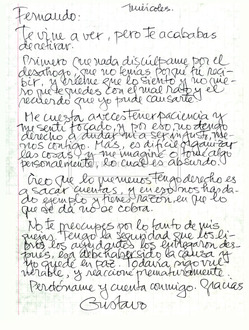 miércoles.
Fernando:
Te vine a ver, pero te acababas
de retirar.
Primero que nada discúlpame por el
desahogo, que no tenías porqué tu reci-
bir, y créeme que lo siento y no quie-
ro que te quedes con el mal rato y el
recuerdo que yo pude causarte.
Me cuesta a veces tener paciencia y
me sentí tocado, y por eso no tengo
derecho a dudar ni a ser injusto, me-
nos contigo. Mas, es difícil organizar
las cosas, y me imaginé o tomé algo
personalmente, lo cual es absurdo.
Creo que lo que menos tengo derecho es
a sacar cuentas, y en eso nos has da-
do ejemplo y tienes razón, en que lo
que se da no se cobra.
No te preocupes por lo tanto de mis
quejas. Tengo la seguridad que los li-
bros los ayudantes los entregaron des-
pués, esa debe haber sido la causa y
yo quedé en paz. Todavía soy vul-
nerable, y reaccioné prematuramente.
Perdóname y cuenta conmigo. Gracias
Gustavo